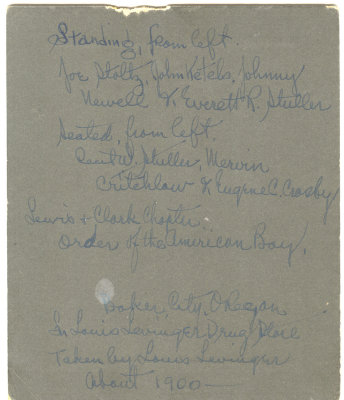 Standing, from left.
Joe Stoltz, John Ketels, Johnny
Newell & Everett R. Stuller
seated, from left.
Stuller, Mervin
Critchlow & Eugene C. Crosby
Lewis & Clark Chapter
Order of the American Boy,
Baker, City, Oregon
In Louis Levinger Drug Store
Taken by Louis Levinger
About 1900 —